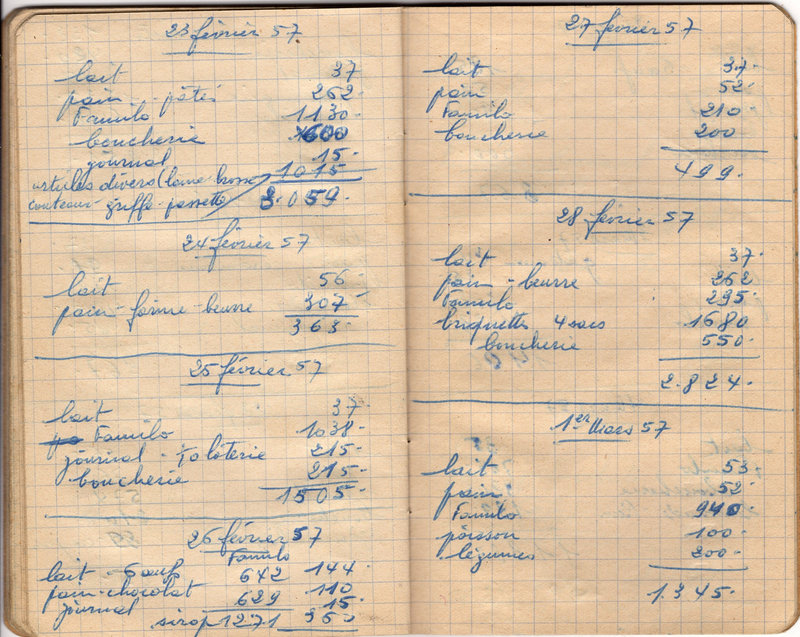 23 février 57
lait 37
pain - pâtes 262.
Familo 1130.
boucherie 600
journal 15.
articles divers (lame-brosse 1015
couteaux-griffe-passette) 3.059.
24 février 57
lait 56
pain-farine-beurre 307.
363.
25 février 57
lait 37.
Familo 1038.
journal - 1/10 loterie 215.
boucherie 215.
1505.
26 février 57
Familo
lait - oeufs 642 144.
pain-chocolat 629 110
journal 15.
sirop 1271 350
27 février 57
lait 37.
pain 52.
Familo 210.
boucherie 200
499.
28 février 57
lait 37.
pain - beurre 262
Familo 295.
briquettes 4 sacs 1680
boucherie 550.
2.824.
1er Mars 57
lait 53.
pain 52.
Familo 940
poisson 100.
légumes 200.
1.345.